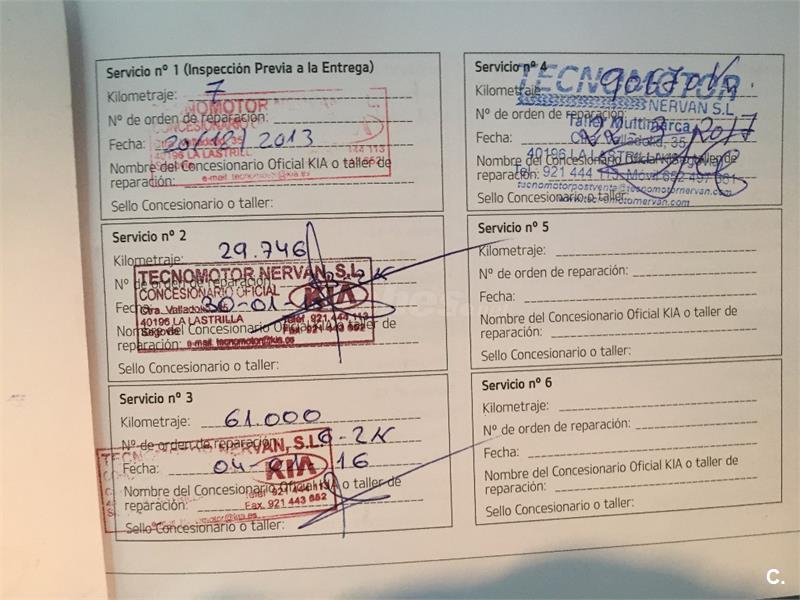 Servicio nº 1 (Inspección Previa a la Entrega)
Kilometraje: 7
Nº de orden de reparación:
Fecha: 2013
Nombre del Concesionario Oficial KIA o taller de
reparación:
Sello Concesionario o taller:
TECNOMOTOR
CONCESIONARIO
40196 LA LASTRILLA
Servicio nº 2
Kilometraje: 29.746
Nº de orden de reparación:
Fecha: 30-01
Nombre del Concesionario Oficial KIA o taller de
reparación:
Sello Concesionario o taller:
TECNOMOTOR NERVAN, S.L.
CONCESIONARIO OFICIAL
KIA
Ctra. Valladolid
40196 LA LASTRILLA
Segovia
Telef. 921 444 113
Fax. 921 443 652
e-mail. tecnomotor@kia.es
Servicio nº 3
Kilometraje: 61.000
Nº de orden de reparación:
Fecha: 04- 16
Nombre del Concesionario Oficial KIA o taller de
reparación:
Sello Concesionario o taller:
NERVAN, S.L.
KIA
921 444 113
Fax. 921 443 652
Servicio nº 4
Kilometraje:
Nº de orden de reparación:
Fecha: 2017
Nombre del Concesionario Oficial KIA o taller de
reparación:
Sello Concesionario o taller:
TECNOMOTOR
NERVAN S.L
Taller Multimarca
Valladolid, 35
Tel. 921 444 113. Móvil 652 497 661
tecnomotorpostventa@tecnomotornervan.com
Servicio nº 5
Kilometraje:
Nº de orden de reparación:
Fecha:
Nombre del Concesionario Oficial KIA o taller de
reparación:
Sello Concesionario o taller:
Servicio nº 6
Kilometraje:
Nº de orden de reparación:
Fecha:
Nombre del Concesionario Oficial KIA o taller de
reparación:
Sello Concesionario o taller:
C.